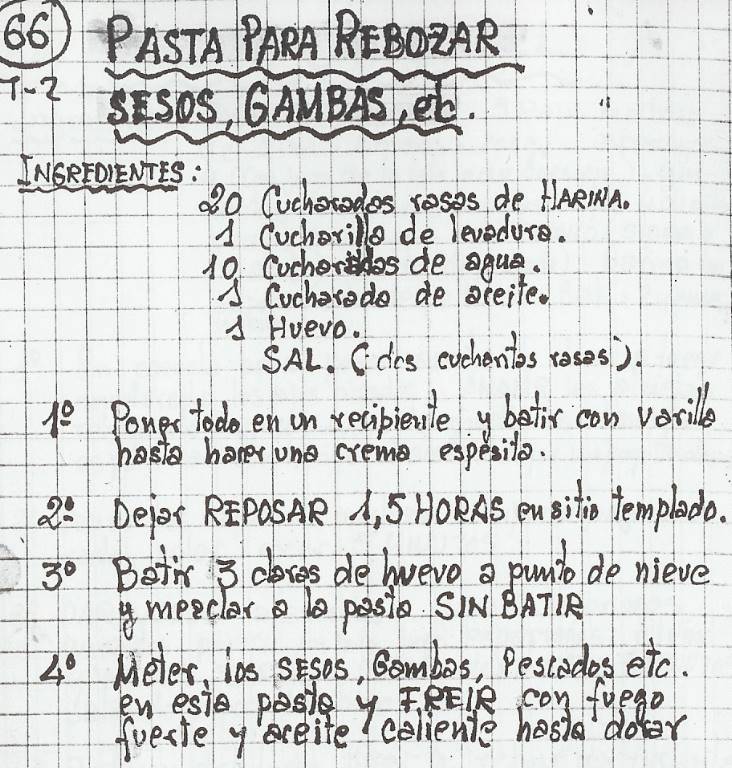 66
T-2
PASTA PARA REBOZAR
SESOS, GAMBAS, etc.
INGREDIENTES:
20 Cucharadas rasas de HARINA.
1 Cucharilla de levadura.
10 Cucharadas de agua.
1 Cucharada de aceite.
1 Huevo.
SAL. (dos cucharitas rasas).
1º Poner todo en un recipiente y batir con varilla
hasta hacer una crema espesita.
2º Dejar REPOSAR 1,5 HORAS en sitio templado.
3º Batir 3 claras de huevo a punto de nieve
y mezclar a la pasta SIN BATIR
4º Meter, los SESOS, Gambas, Pescados etc.
en esta pasta y FREIR con fuego
fuerte y aceite caliente hasta dorar